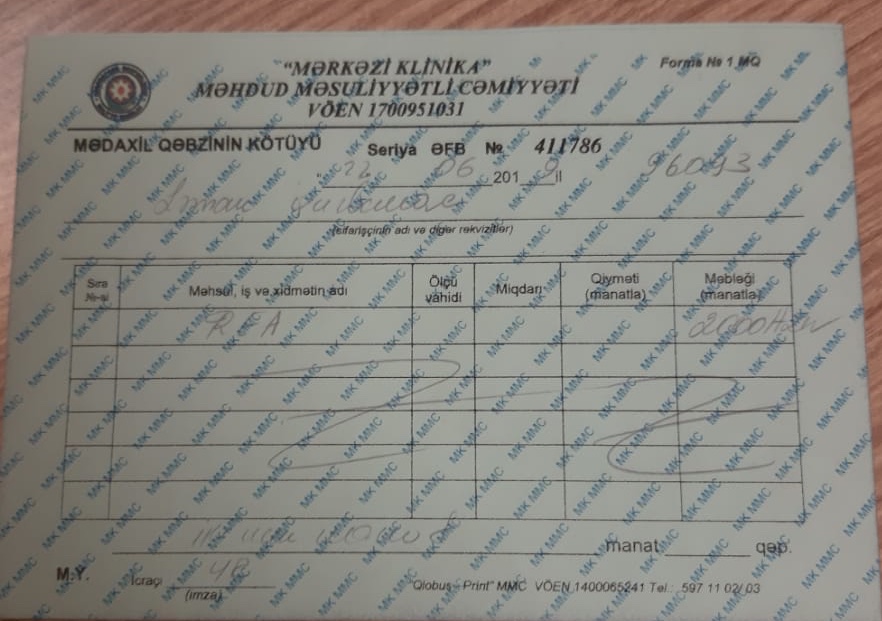 "MƏRKƏZİ KLİNİKA"
Forma № 1 MQ
MƏHDUD MƏSULİYYƏTLİ CƏMİYYƏTİ
VÖEN 1700951031
MƏDAXİL QƏBZİNİN KÖTÜYÜ Seriya ƏFB № 411786
"22 06 2019 il 96093
(sifarişçinin adı və digər rekvizitlər)
Sıra №-si Məhsul, iş və xidmətin adı Ölçü vahidi Miqdarı Qiyməti (manatla) Məbləği (manatla)
2000
manat qəp.
M.Y. İcraçı
(imza)
"Qlobus-Print" MMC VÖEN 1400065241 Tel.: 597 11 02/ 03
MK MMC